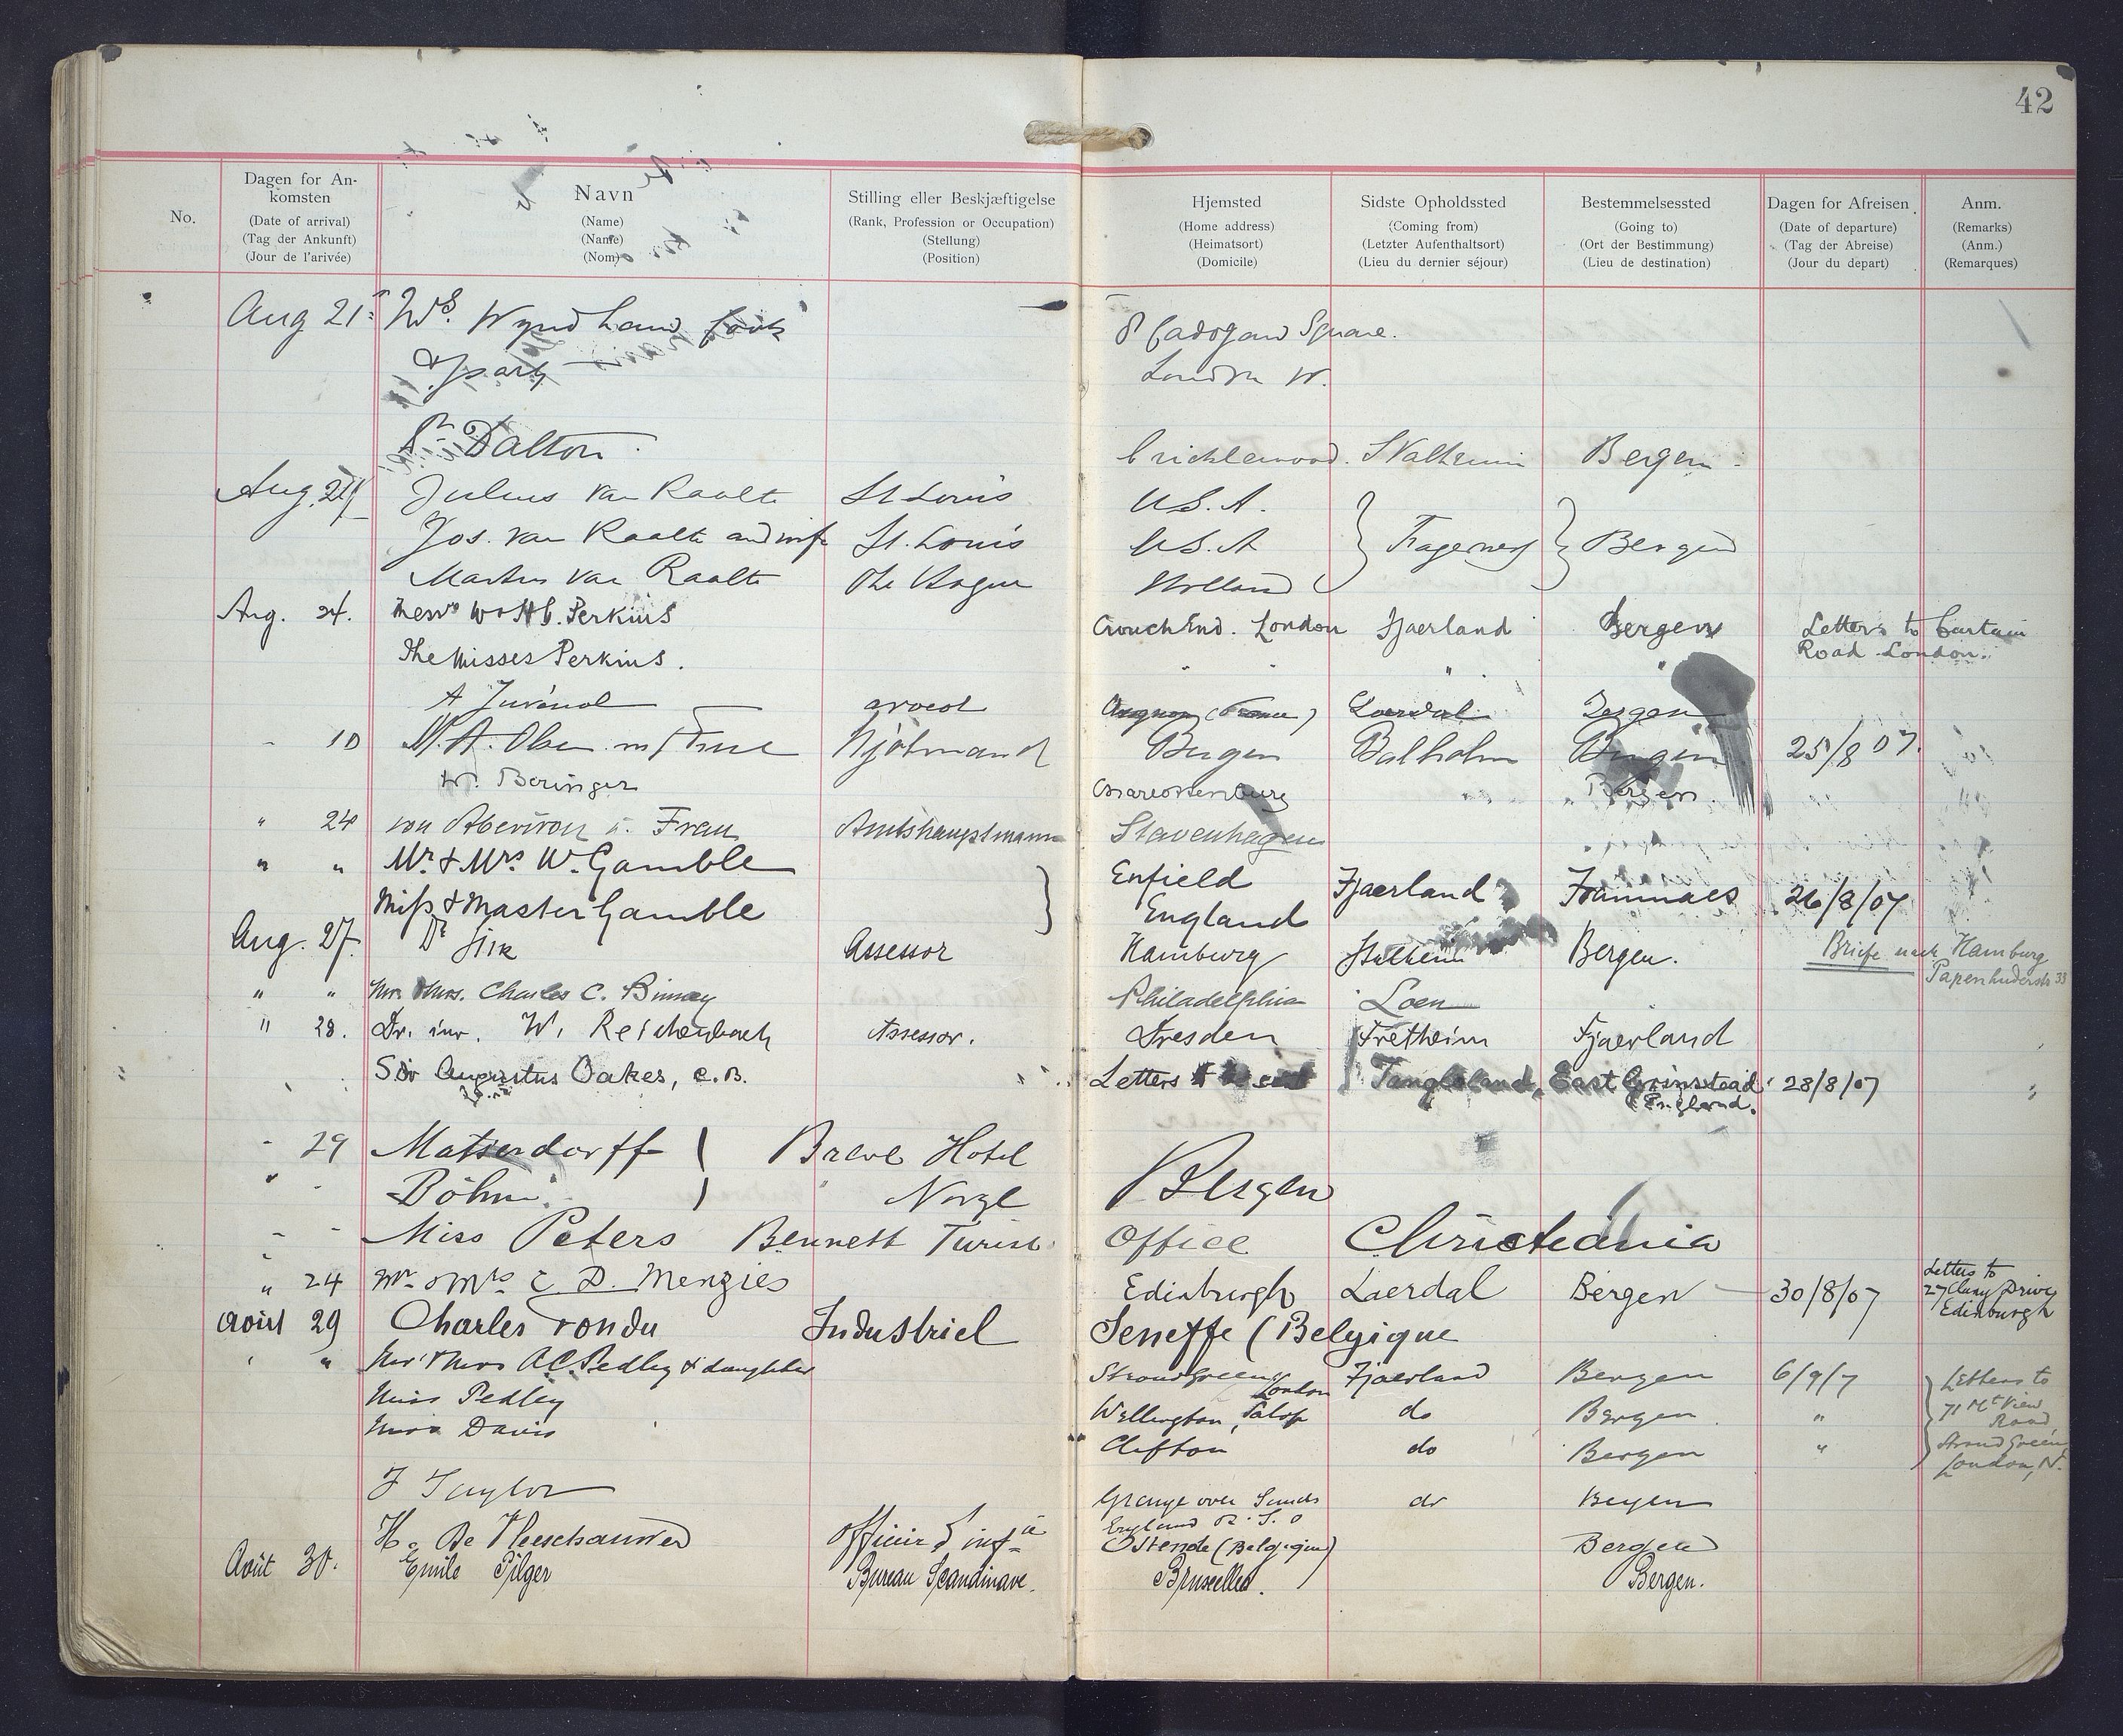 42
No.
Dagen for An-
komsten
(Date of arrival)
(Tag der Ankunft)
(Jour de l'arivée)
Navn
(Name)
(Name)
(Nom)
Stilling eller Beskjæftigelse
(Rank, Profession or Occupation)
(Stellung)
(Position)
Hjemsted
(Home address)
(Heimatsort)
(Domicile)
Sidste Opholdssted
(Coming from)
(Letzter Aufenthaltsort)
(Lieu du dernier séjour)
Bestemmelsessted
(Going to)
(Ort der Bestimmung)
(Lieu de destination)
Dagen for Afreisen
(Date of departure)
(Tag der Abreise)
(Jour du depart)
Anm.
(Remarks)
(Anm.)
(Remarques)
Aug 21 8 Cadogan Square.
& party London W.
Dalton Cricklewood. Stalheim Bergen
Aug. Julius van Raalte St Louis U.S.A.
Jos. van Raalte and wife St. Louis U.S.A Fagernes Bergen
Martin van Raalte The Hague Holland
Aug. 24. Perkins Crouch End. London Fjaerland Bergen Letters to Curtain
The Misses Perkins. " " " Road London.
A Juvénal avocat Avignon (France) Laerdal Bergen
" 10 Olsen m/Frue Kjøbmand Bergen Balholm Bergen 25/8 07.
W. Beringer Bergen
" 24 von u. Frau Amtshauptmann Stavenhagen
" " Mr. & Mrs. W. Gamble Enfield Fjaerland Framnaes 26/8/07
Miss & Master Gamble England
Aug. 27. Dr Assessor Hamburg Stalheim Bergen. Briefe nach Hamburg
" " Mr. & Mrs. Charles C. Binney Philadelphia Loen
" 28. Dr. iur. W. Reichenbach Assessor. Dresden Fretheim Fjaerland
Sir Augustus Oakes, C.B. Letters Tangleland, East Grinstead 28/8/07
England.
- 29 Matserdorff Hotel
" - Böhm Norge Bergen
- - Miss Peters Bennett Turist Office Christiania
" 24 Mr & Mrs D. Menzies Edinburgh Laerdal Bergen 30/8/07 Letters to
27 Cluny Drive
Edinburgh
Août 29 Charles Rondu Industriel Seneffe (Belgique
" " Mr & Mrs A.C. Pedley & daughter Stroud Green London Fjaerland Bergen 6/9/7 Letters to
Miss Pedley Wellington, Salop do Bergen " 71 Mt View
Road
Miss Davis Clifton do Bergen " Stroud Green
London, N.
F Taylor Grange over Sands do Bergen
England R.S.O
H. De Vleeschauwer officier d'infie Ostende (Belgique) Bergen
Août 30. Emile Pilger Bureau Scandinave. Bruxelles. Bergen.